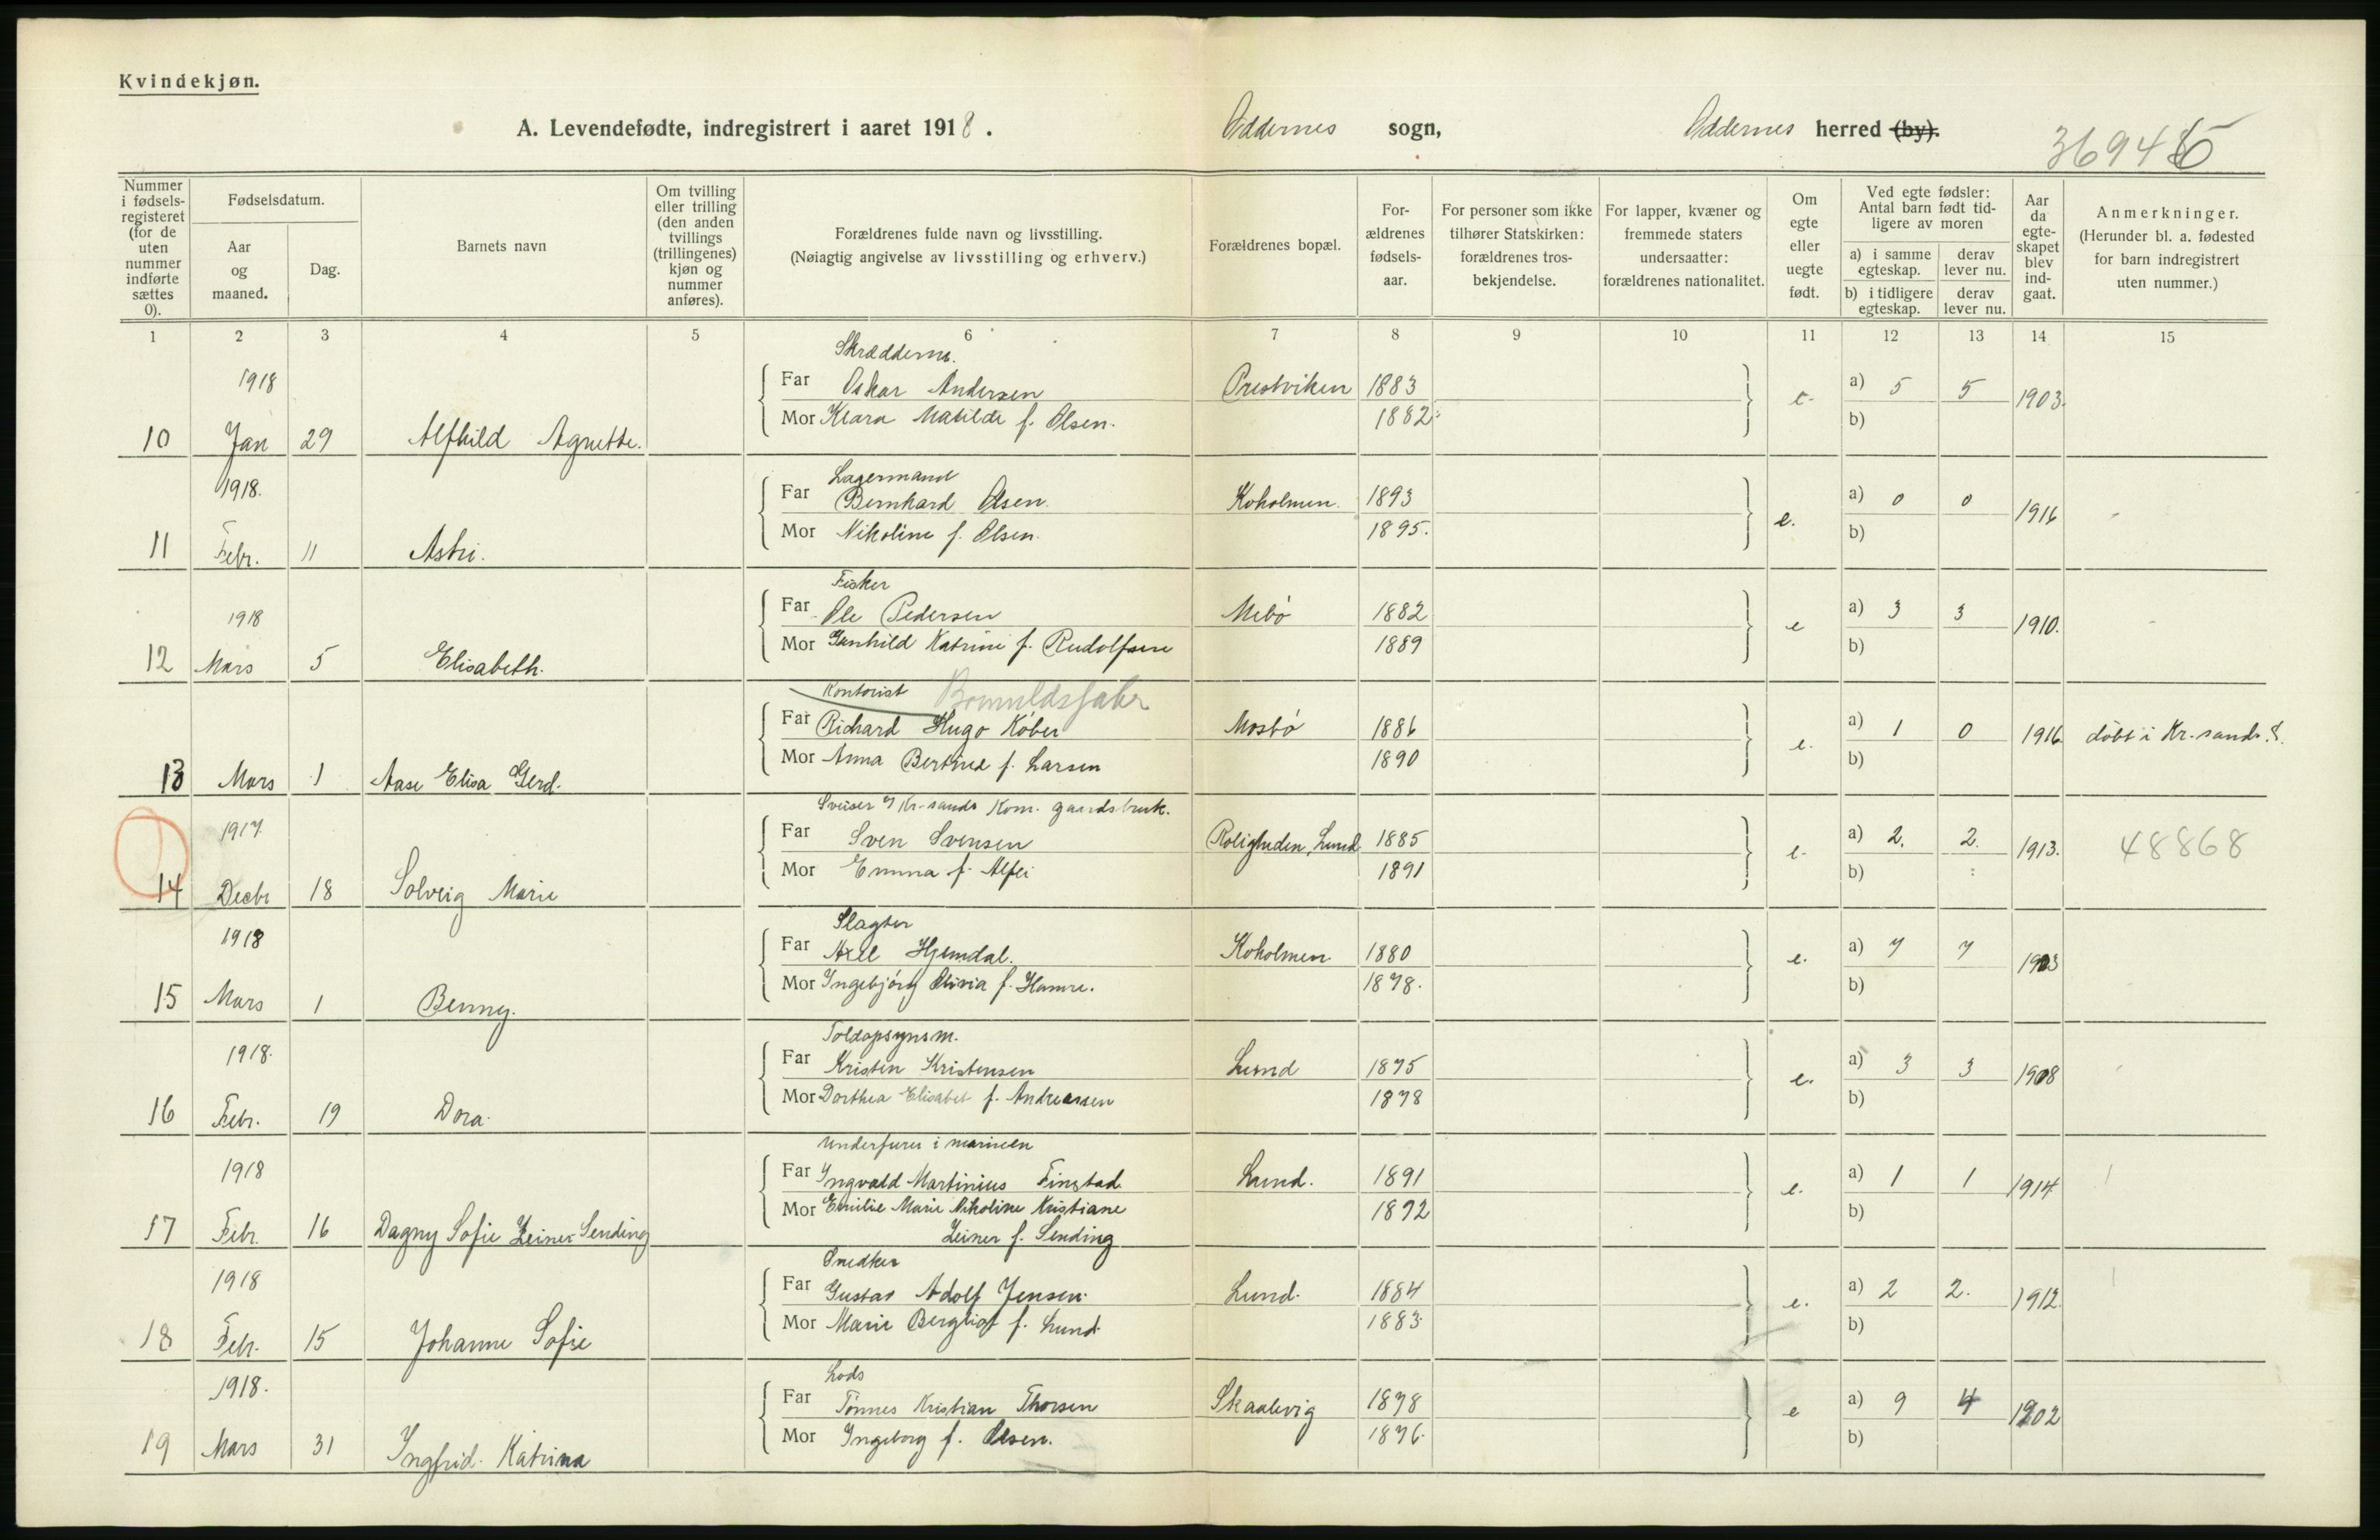 Kvindekjøn.
A. Levendefødte, indregistrert i aaret 1918. Oddernes sogn, Oddernes herred (by).
Nummer i fødselsregisteret (for de uten nummer indførte sættes 0).
Fødselsdatum.
Aar og maaned.
Dag.
Barnets navn
Om tvilling eller trilling (den anden tvillings (trillingenes) kjøn og nummer anføres).
Forældrenes fulde navn og livsstilling.
(Nøiagtig angivelse av livsstilling og erhverv.)
Forældrenes bopæl.
Forældrenes fødselsaar.
For personer som ikke tilhører Statskirken: forældrenes trosbekjendelse.
For lapper, kvæner og fremmede staters undersaatter: forældrenes nationalitet.
Om egte eller uegte født.
Ved egte fødsler: Antal barn født tidligere av moren
a) i samme egteskap. derav lever nu.
b) i tidligere egteskap. derav lever nu.
Aar da egteskapet blev indgaat.
Anmerkninger.
(Herunder bl. a. fødested for barn indregistrert uten nummer.)
1 2 3 4 5 6 7 8 9 10 11 12 13 14 15
Skræddersv.
1918 Far Oskar Andersen Prestviken 1883 e. a) 5 5 1903.
Mor Klara Matilde f. Olsen. 1882. b)
10 Jan 29 Alfhild Agnethe.
Lagermand
1918. Far Bernhard Olsen. Koholmen. 1893 e. a) 0 0 1916
Mor Nikoline f. Olsen. 1895. b)
11 Febr. 11 Astri.
Fisker
1918 Far Ole Pedersen Mebø 1882 e a) 3 3 1910.
Mor Gunhild Katrine f. Rudolfsen 1889 b)
12 Mars 5 Elisabeth.
Kontorist Bomuldsfabr
Far Richard Hugo Køber Mosbø 1886 e. a) 1 0 1916 døbt i Kr.sand S.
Mor Anna Bertine f. Larsen 1890 b)
13 Mars 1 Aase Elisa Gerd.
Sveiser v Kr-sands Kom. gaardsbruk.
1917. Far Sven Svensen Roligheden, Lund 1885 e. a) 2. 2. 1913. 48868
Mor Emma f. 1891 b)
14 Decbr 18 Solveig Marie
Slagter
1918 Far Axel Hjemdal. Koholmen 1880 e. a) 7 7 1903
Mor Ingebjørg Olivia f. Hamre. 1878. b)
15 Mars 1 Benny.
Toldopsynsm.
1918. Far Kristen Kristensen Lund 1875 e. a) 3 3 1908
Mor Dorthea Elisabet f. Andreassen 1878 b)
16 Febr. 19 Dora.
Underfurer i marinen
1918 Far Ingvald Martinius Finstad Lund. 1891 e. a) 1 1 1914
Mor Emilie Marie Nikoline Kristiane 1892 b)
Zeiner f. Sending
17 Febr. 16 Dagny Sofie Zeiner Sending
Snedker
1918 Far Gustav Adolf Jensen. Lund. 1884 e. a) 2 2. 1912.
Mor Marie Bergliot f. Lund. 1883. b)
18 Febr. 15 Johanne Sofie
Lods
1918. Far Tønnes Kristian Thorsen Skaalevig 1878 e a) 9 4 1902
Mor Ingeborg f. Olsen. 1876. b)
19 Mars 31 Ingfrid Katrina